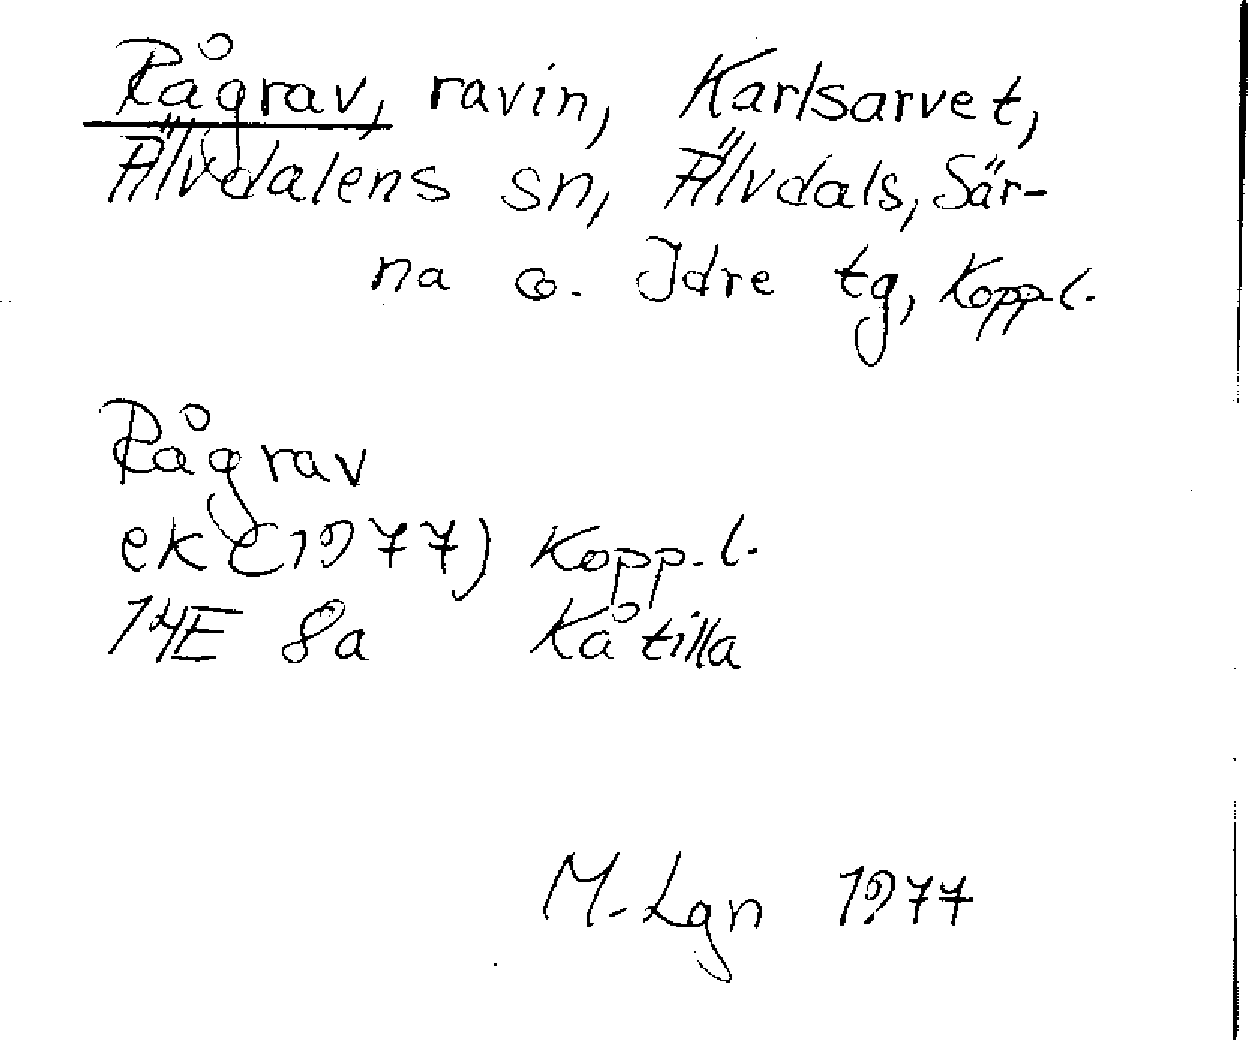 Rågrav, ravin, Karlsarvet,
Älvdalens sn, Älvdals, Sär-
na o. Idre tg, Kopp.l.
Rågrav
ek (1977) Kopp.l.
14E 8a Kåtilla
M-Lgn 1977